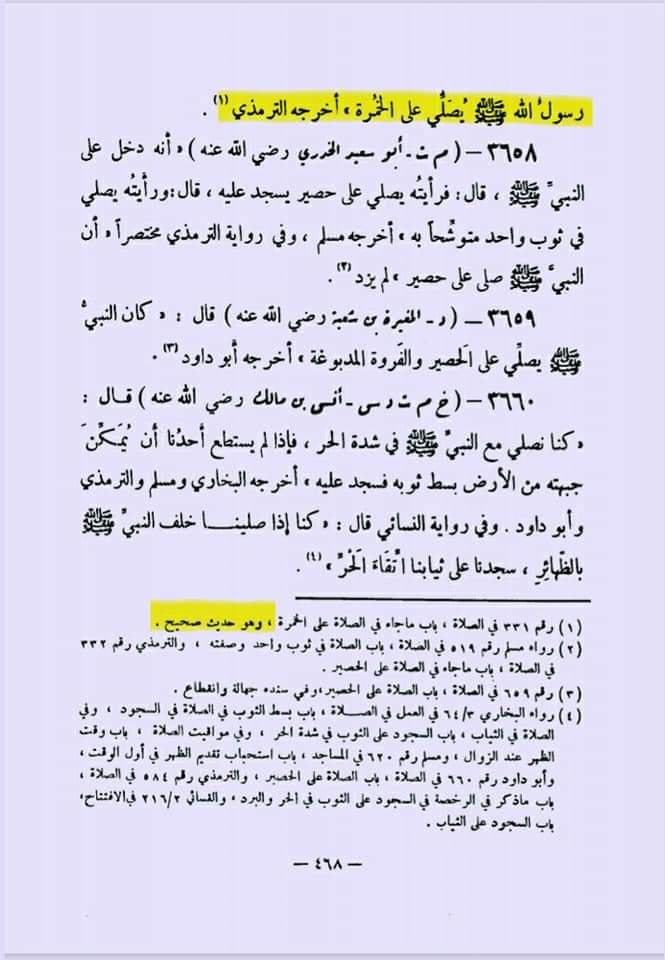 رسولُ الله ﷺ يُصَلِّي على الخُمرة » أخرجه الترمذي (١) .
٣٦٥٨ – ( م ت - أبو سعيد الخدري رضي الله عنه ) « أنه دخل على
النبيِّ ﷺ ، قال : فرأيتُه يصلي على حصير يسجد عليه ، قال : ورأيتُه يصلي
في ثوب واحد متوشِّحاً به » أخرجه مسلم ، وفي رواية الترمذي مختصراً « أن
النبيَّ ﷺ صلى على حصير » لم يزد (٢) .
٣٦٥٩ – ( د - المغيرة بن شعبة رضي الله عنه ) قال : « كان النبيُّ
ﷺ يصلِّي على الحَصير والفَروة المدبوغة » أخرجه أبو داود (٣) .
٣٦٦٠ – ( خ م ت د س - أنس بن مالك رضي الله عنه ) قال :
« كنا نصلي مع النبيِّ ﷺ في شدة الحر ، فإذا لم يستطع أحدُنا أن يُمَكِّنَ
جبهته من الأرض بسط ثوبه فسجد عليه » أخرجه البخاري ومسلم والترمذي
وأبو داود . وفي رواية النسائي قال : « كنا إذا صلينا خلف النبيِّ ﷺ
بالظَّهائرِ ، سجدنا على ثيابنا اتِّقاءَ الحَرِّ » (٤) .
(١) رقم ٣٣١ في الصلاة ، باب ماجاء في الصلاة على الخمرة ، وهو حديث صحيح .
(٢) رواه مسلم رقم ٥١٩ في الصلاة ، باب الصلاة في ثوب واحد وصفته ، والترمذي رقم ٣٣٢
في الصلاة ، باب ماجاء في الصلاة على الحصير .
(٣) رقم ٦٥٩ في الصلاة ، باب الصلاة على الحصير ، وفي سنده جهالة وانقطاع .
(٤) رواه البخاري ٦٤/٣ في العمل في الصلاة ، باب بسط الثوب في الصلاة في السجود ، وفي
الصلاة في الثياب ، باب السجود على الثوب في شدة الحر ، وفي مواقيت الصلاة ، باب وقت
الظهر عند الزوال ، ومسلم رقم ٦٢٠ في المساجد ، باب استحباب تقديم الظهر في أول الوقت ،
وأبو داود رقم ٦٦٠ في الصلاة ، باب الصلاة على الحصير ، والترمذي رقم ٥٨٤ في الصلاة ،
باب ماذكر في الرخصة في السجود على الثوب في الحر والبرد ، والنسائي ٢١٦/٢ في الافتتاح ،
باب السجود على الثياب .
– ٤٦٨ –